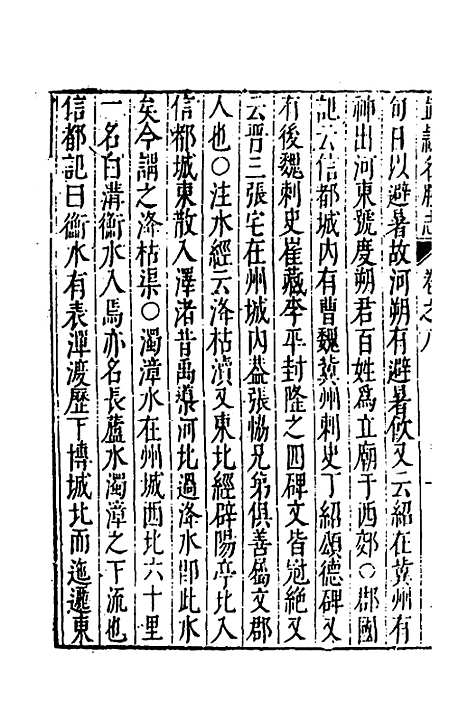 直隸名勝志 卷之八
旬日以避暑故河朔有避暑飲又云紹在冀州有
神出河東號度朔君百姓爲立廟于西郊○郡國
記云信都城內有曹魏冀州刺史丁紹頌德碑又
有後魏刺史崔藏李平封隆之四碑文皆冠絶又
云晉三張宅在州城內葢張恊兄弟俱善屬文郡
人也○注水經云洚枯瀆又東北經辟陽亭北入
信都城東散入澤渚昔禹䢴河北過洚水卽此水
矣今謂之洚枯渠○濁漳水在州城西北六十里
一名白溝衡水入焉亦名長蘆水濁漳之下流也
信都記曰衡水有袁潭渡歷下博城北而迤邐東